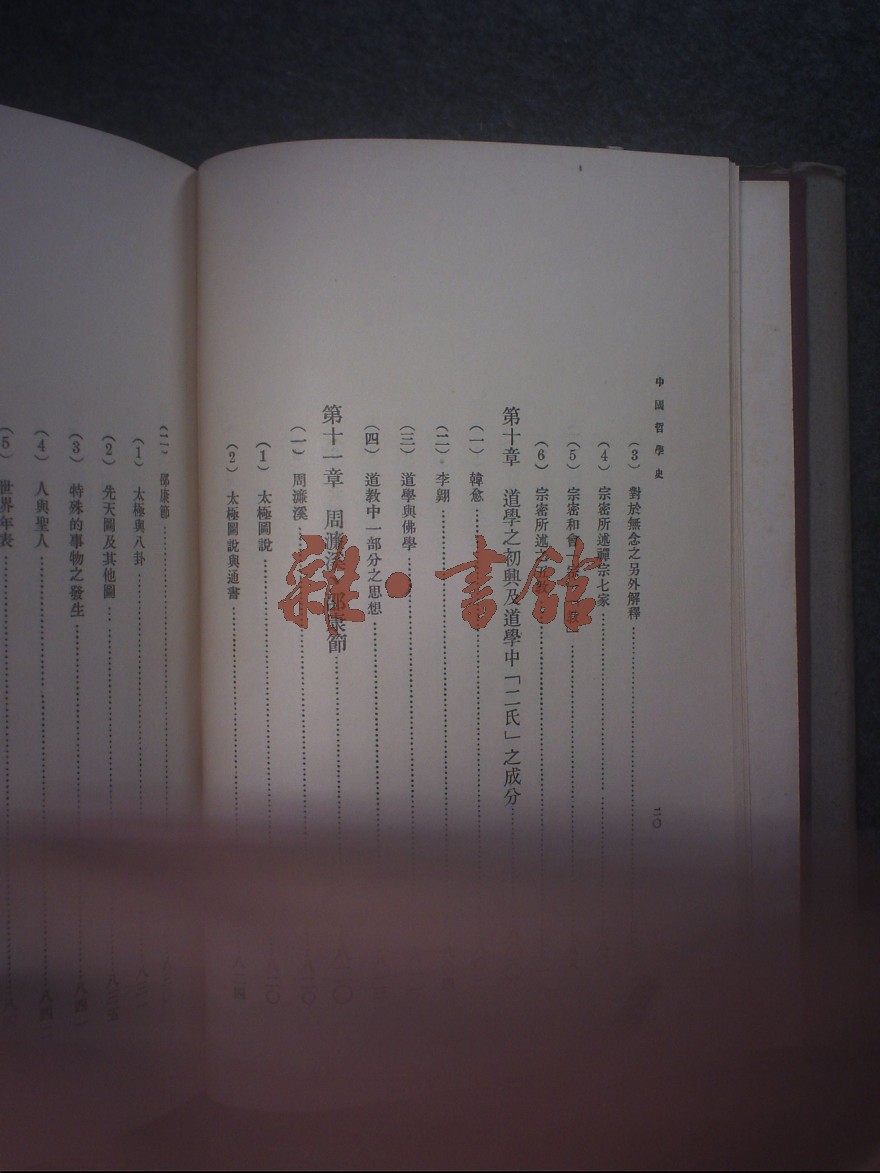 中國哲學史
二〇
(3) 對於無念之另外解釋
(4) 宗密所述禪宗七家
(5) 宗密和會
(6) 宗密所述之五教
第十章 道學之初興及道學中「二氏」之成分
(一) 韓愈
(二) 李翱
(三) 道學與佛學
(四) 道教中一部分之思想
第十一章 周濂溪 邵康節 八二〇
(一) 周濂溪 八二〇
(1) 太極圖說 八二〇
(2) 太極圖說與通書 八二四
(二) 邵康節
(1) 太極與八卦 八三一
(2) 先天圖及其他圖 八三五
(3) 特殊的事物之發生 八四一
(4) 人與聖人 八四
(5) 世界年表 八
雜·書館